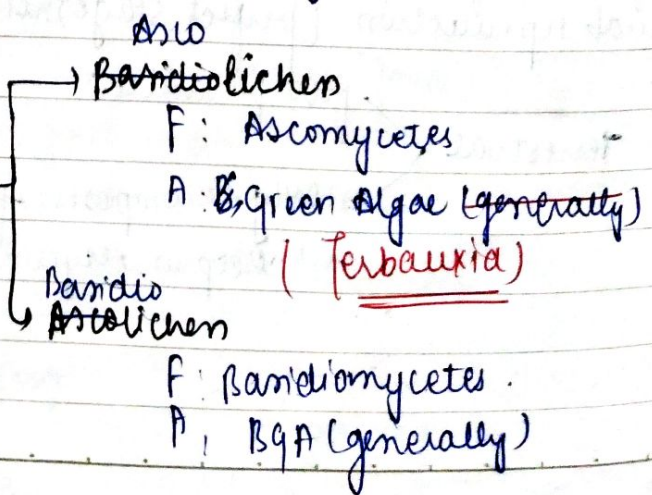 Asco
Basidiolichen.
F: Ascomycetes
A: B, Green Algae (generally)
(Terbauxia)
Basidio
Ascolichen
F: Basidiomycetes.
A, BGA (generally)